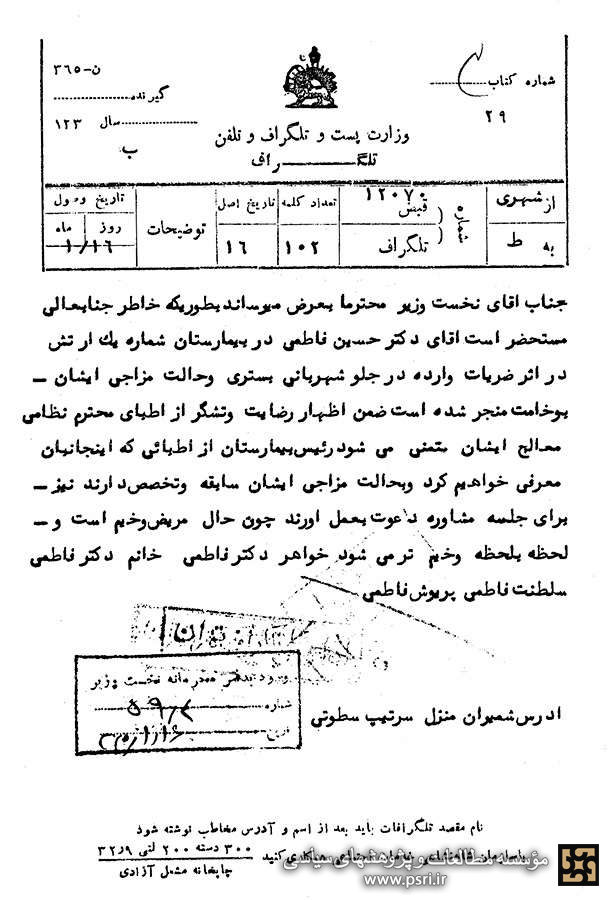 ن-۳۶۵
شماره کتاب
گیرنده
۲۹
سال ۱۲۳
وزارت پست و تلگراف و تلفن
ب
تلگـــراف
از شهری
شماره
قبض ۱۲۰۷۰
تعداد کلمه
تاریخ اصل
توضیحات
تاریخ وصول
روز
ماه
به ط
تلگراف
۱۰۲
۱۶
۱/۱۶
جناب اقای نخست وزیر محترما بعرض میرساند بطوریکه خاطر جنابعالی
مستحضر است اقای دکتر حسین فاطمی در بیمارستان شماره یك ارتش
در اثر ضربات وارده در جلو شهربانی بستری وحالت مزاجی ایشان ـ
بوخامت منجر شده است ضمن اظهار رضایت وتشگر از اطبای محترم نظامی
معالج ایشان متمنی می شود رئیس بیمارستان از اطبائی که اینجانبان
معرفی خواهیم کرد وبحالت مزاجی ایشان سابقه وتخصص دارند نیز ـ
برای جلسه مشاوره دعوت بعمل اورند چون حال مریض وخیم است و ـ
لحظه بلحظه وخیم تر می شود خواهر دکتر فاطمی خانم دکتر فاطمی
سلطنت فاطمی پریوش فاطمی
تهران
ورود بدفتر محرمانه نخست وزیر
شماره
تاریخ
ادرس شمیران منزل سرتیپ سطوتی
نام مقصد تلگرافات باید بعد از اسم و آدرس مخاطب نوشته شود
همکاری کنید ۳۰۰ دسته ۲۰۰ لتی ۳۲٫۹
چاپخانه مشعل آزادی
مؤسسه مطالعات و پژوهشهای سیاسی
www.psri.ir